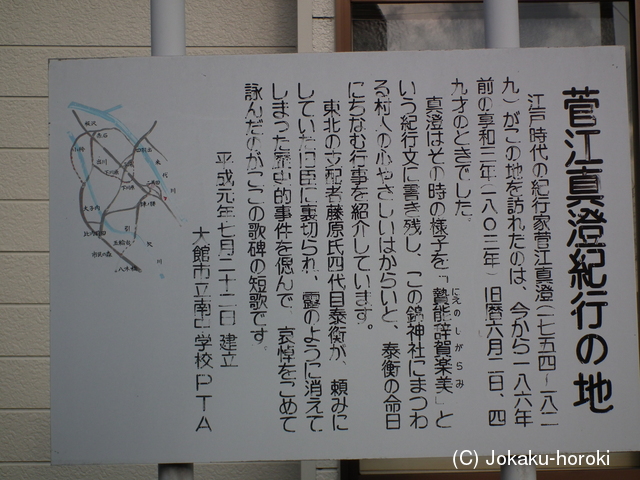 菅江真澄紀行の地
江戸時代の紀行家菅江真澄（一七五四～一八二
九）がこの地を訪れたのは、今から一八六年
前の享和三年（一八〇三年）旧暦六月二日、四
九才のときでした。
真澄はその時の様子を「贄能辞賀楽美」と
にえのしがらみ
いう紀行文に書き残し、この錦神社にまつわ
る村人の心やさしいはからいと、泰衡の命日
にちなむ行事を紹介しています。
東北の支配者藤原氏四代目泰衡が、頼みに
していた旧臣に裏切られ、露のように消えて
しまった歴史的事件を偲んで、哀悼をこめて
詠んだのがここの歌碑の短歌です。
平成元年七月二十二日 建立
大館市立南中学校PTA
(C) Jokaku-horoki